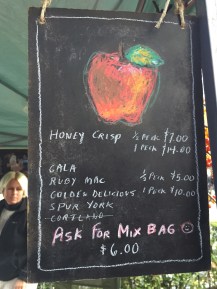 HONEY CRISP ½ PECK $7.00
1 PECK $14.00
GALA
RUBY MAC ½ PECK $5.00
GOLDEN DELICIOUS 1 PECK $10.00
SPUR YORK
CORTLAND
ASK FOR MIX BAG
$6.00